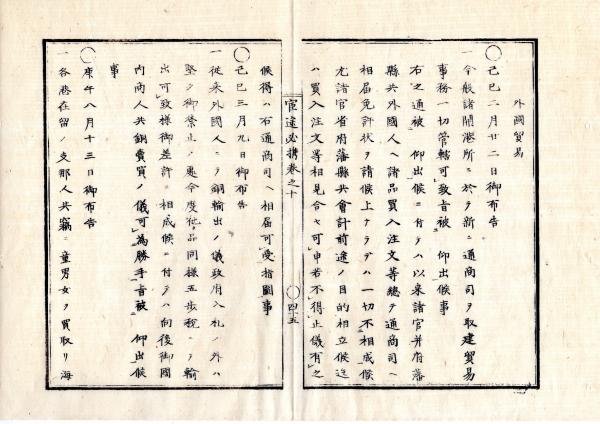 外國貿易
◯己巳二月廿二日御布告
一今般諸開港所ニ於テ新ニ通商司ヲ取建貿易
事務一切管轄可致旨被 仰出候事
右之通被 仰出候ニ付テハ以来諸官并府藩
縣共外國人ヘ諸品買入注文等總テ通商司ヘ
相届免許状ヲ請候上ナラデハ一切不相成候
尤諸官省府藩縣共會計前途ノ目的相立候迄
ハ買入注文等相見合セ可申若不得止儀有之
宦途必携巻之十
◯四十五
候得ハ右通商司ヘ相届可受指圖事
◯己巳三月九日御布告
一従来外國人ニテ銅輸出ノ儀政府入札ノ外ハ
堅ク御禁止ノ處今度他品同様五歩税ニテ輸
出可致様御差許ニ相成候ニ付テハ向後御國
内商人共銅賣買ノ儀可為勝手旨被 仰出候
事
◯庚午八月十三日御布告
一各港在留ノ支那人共竊ニ童男女ヲ買取リ海